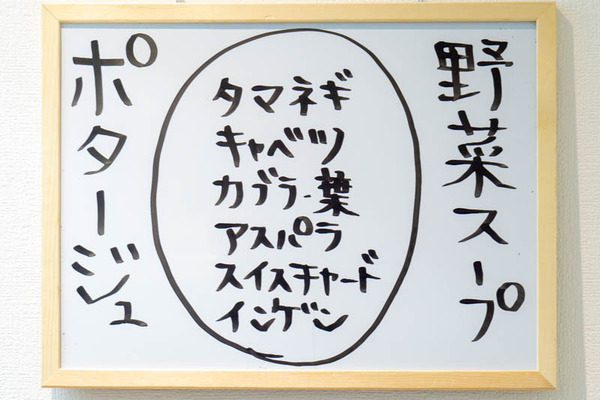 野菜スープ
タマネギ
キャベツ
カブラ・葉
アスパラ
スイスチャード
インゲン
ポタージュ